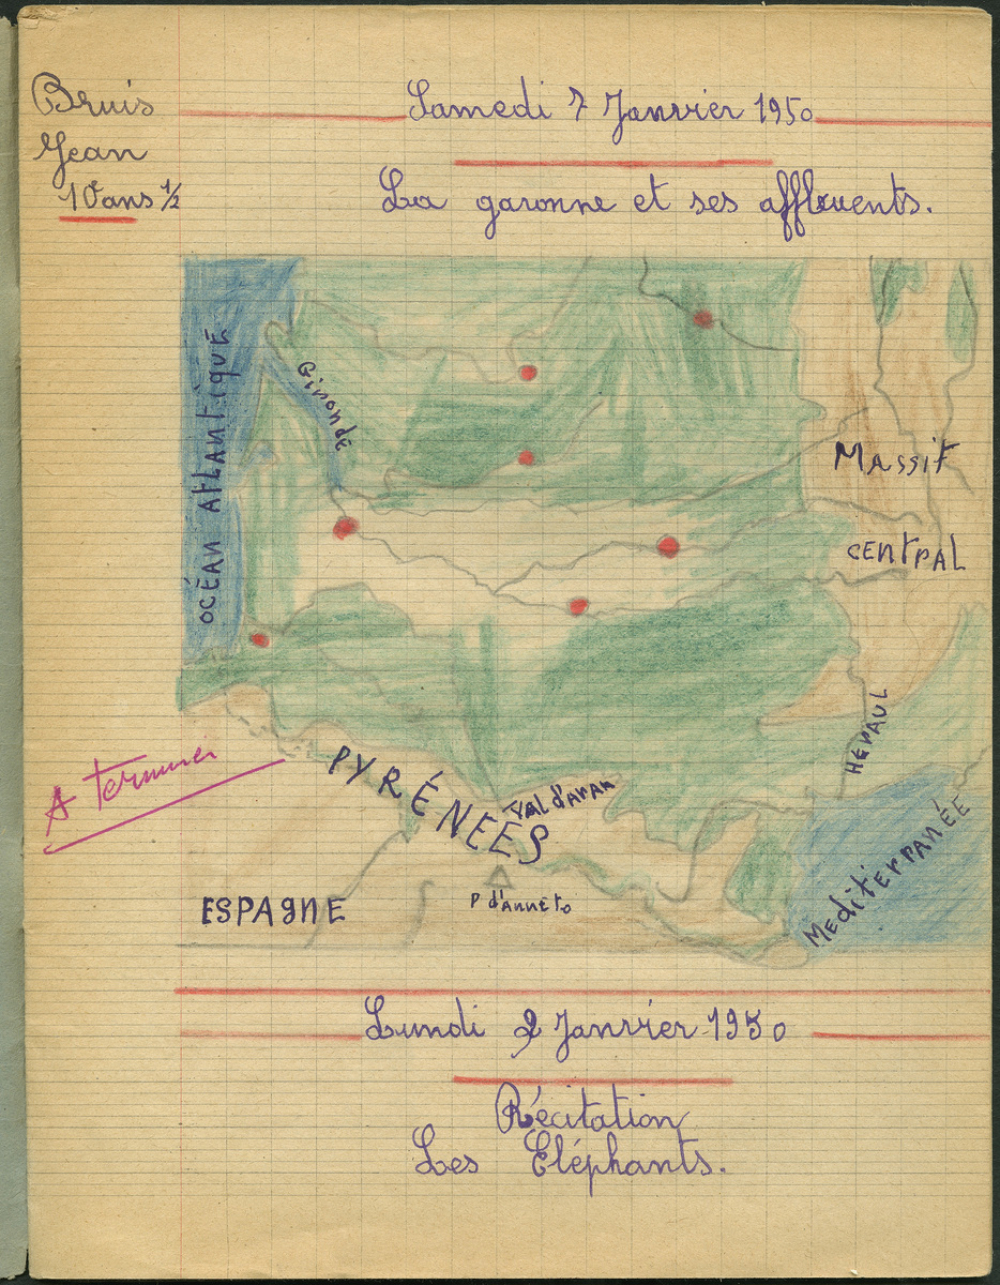 Bruis
Jean
10 ans ½
Samedi 7 Janvier 1950
La garonne et ses affluents.
OCÉAN ATLANTIQUE
Gironde
MASSIF
CENTRAL
HÉRAUL
MEDITERRANÉE
PYRÉNEES
Val d'aran
P d'Anneto
ESPAGNE
A terminer
Lundi 9 Janvier 1950
Récitation
Les Eléphants.